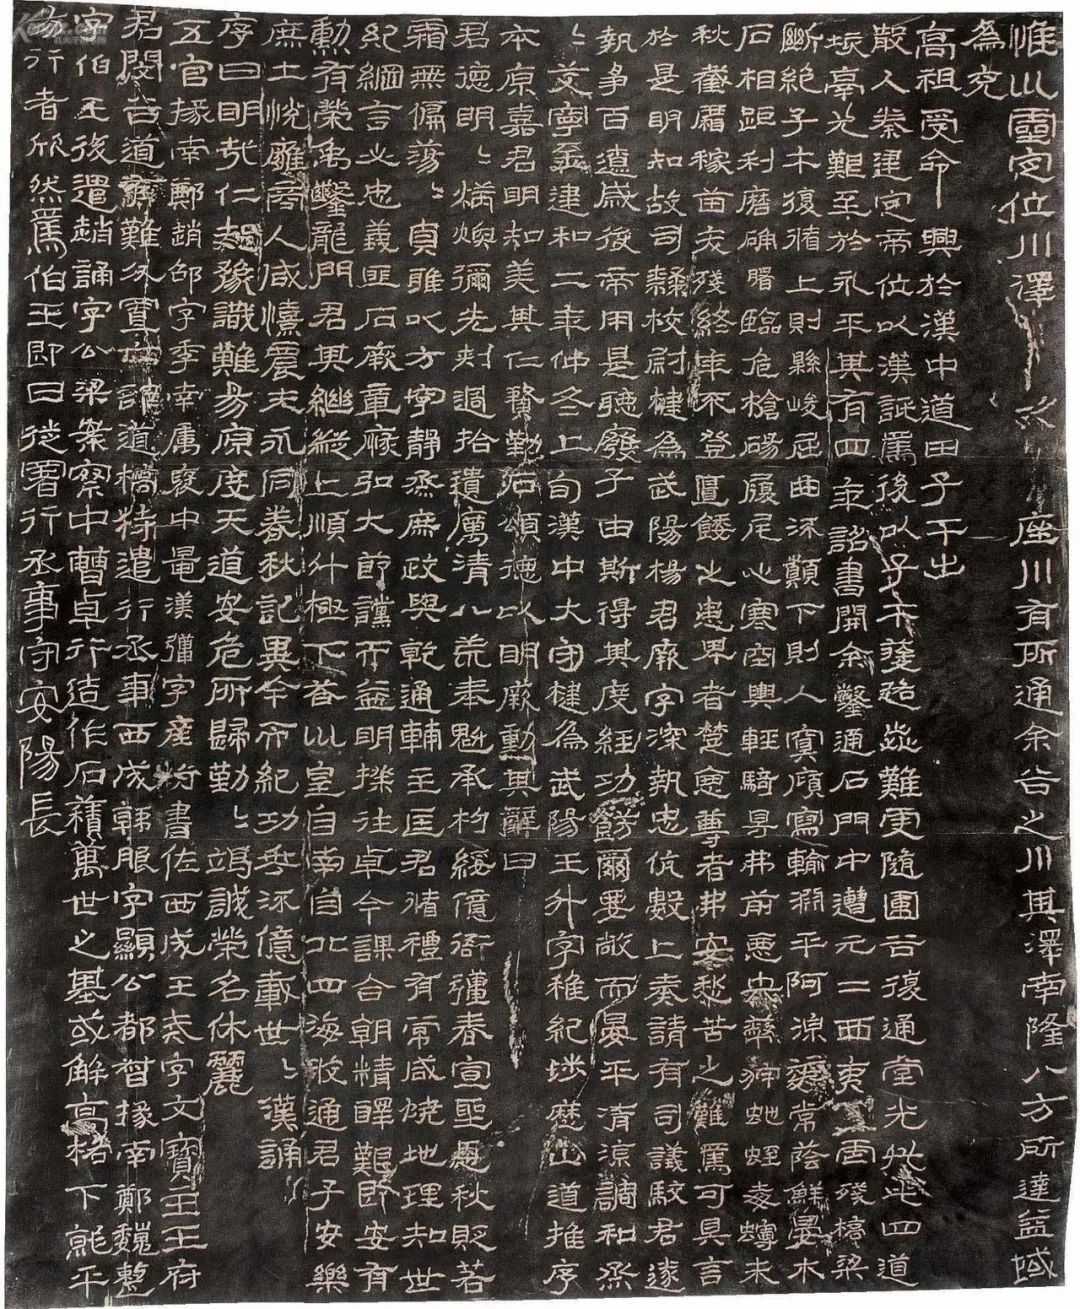 惟巛靈定位川澤 川有所通余谷之川其澤南隆八方所達益域
為充
高祖受命興於漢中道由子午出
散入秦建定帝位以漢詆焉後以子午塗路歰難更隨圍谷復通堂光凡此四道
垓鬲尤艱至於永平其有四年詔書開余鑿通石門中遭元二西夷虐殘橋梁
斷絕子午復循上則縣峻屈曲流顛下則入冥傾寫輸淵平阿湶泥常蔭鮮晏木
石相距利磨确磐臨危槍碭履尾心寒空輿輕騎㝵弗前惡虫狩虵蛭毒蟃未
秋截霜稼苗夭殘終年不登匱餧之患卑者楚惡尊者弗安愁苦之難焉可具言
於是明知故司隸校尉楗為武陽楊君厥字深執忠伉數上奏請有司議駮君遂
執爭百遼咸從帝用是聽廢子由斯得其度經功飭爾要敞而晏平清涼調和烝
〻艾寧至建和二年仲冬上旬漢中大守楗為武陽王升字稚紀涉歷山道推序
本原嘉君明知美其仁賢勒石頌德以明厥勳其辭曰
君德明〻炳煥彌光刺過拾遺厲清八荒奉魁承杓綏億衙彊春宣聖恩秋貶若
霜無偏蕩〻貞雅以方寧靜烝庶政與乾通輔主匡君循禮有常咸曉地理知世
紀綱言必忠義匪石厥章恢弘大節讜而益明揆往卓今謀合朝情醳艱即安有
勳有榮禹鑿龍門君其繼縱上順斗極下答巛皇自南自北四海攸通君子安樂
庶士悅雍商人咸憘農夫永同春秋記異今而紀功垂流億載世〻漢誦
序曰明哉仁知豫識難易原度天道安危所歸勤〻竭誠榮名休麗
五官掾南鄭趙邵字季南屬褒中晁漢彊字產伯書佐西成王戒字文寶主王府
君閔谷道危難分置六部道橋特遣行丞事西成韓朖字顯公都督掾南鄭魏整
字伯玉後遣趙誦字公梁案察中曹卓行造作石積萬世之基或解高格下就平
易行者欣然焉伯玉即日徙署行丞事守安陽長